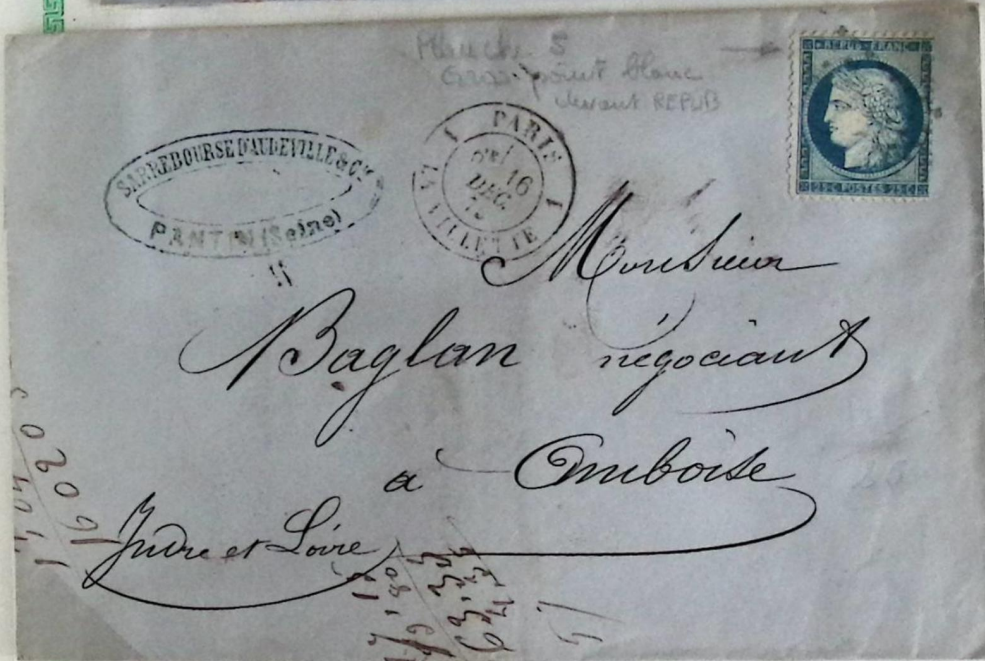 Planche 5
Gros point blanc
devant REPUB
REPUB·FRANC
25C·POSTES·25C
SARREBOURSE D'AUDEVILLE & CIE
PANTIN (Seine)
1 PARIS 1
16
DÉC.
LA VILLETTE
Monsieur
Baglan négociant
à Amboise
Indre et Loire